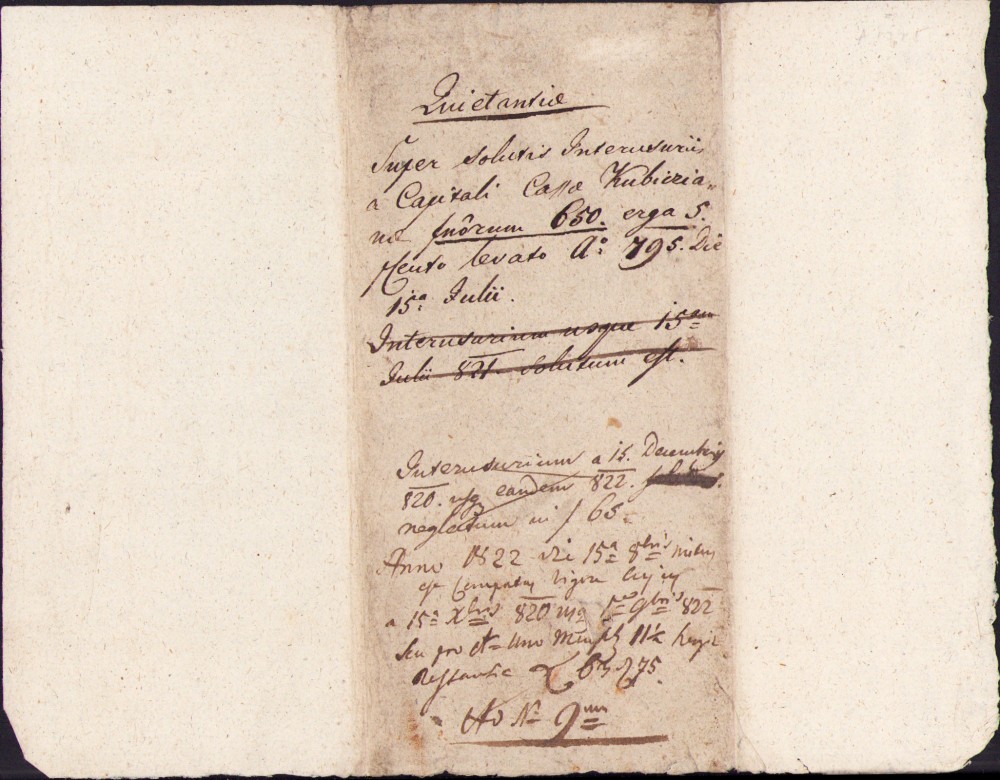 Quietantiæ
Super solutis Interusuriis
a Capitali Cassæ Kubiczia-
næ fnôrum 650. erga 5.
Cento levato Aº 795. Die
15ª Julii.
Interusurium usque 15am
Julii 821. solutum est.
Interusurium a 15. Decembris
820. usq eandem 822.
neglectum in f 65
Anno 1822 die 15ª 8bris initus
est Computus vigore cujus
a 15ª Xbris 820 usq 9bris 822
seu pro Uno 11½
Restantie 75.
Ad Nº 9um